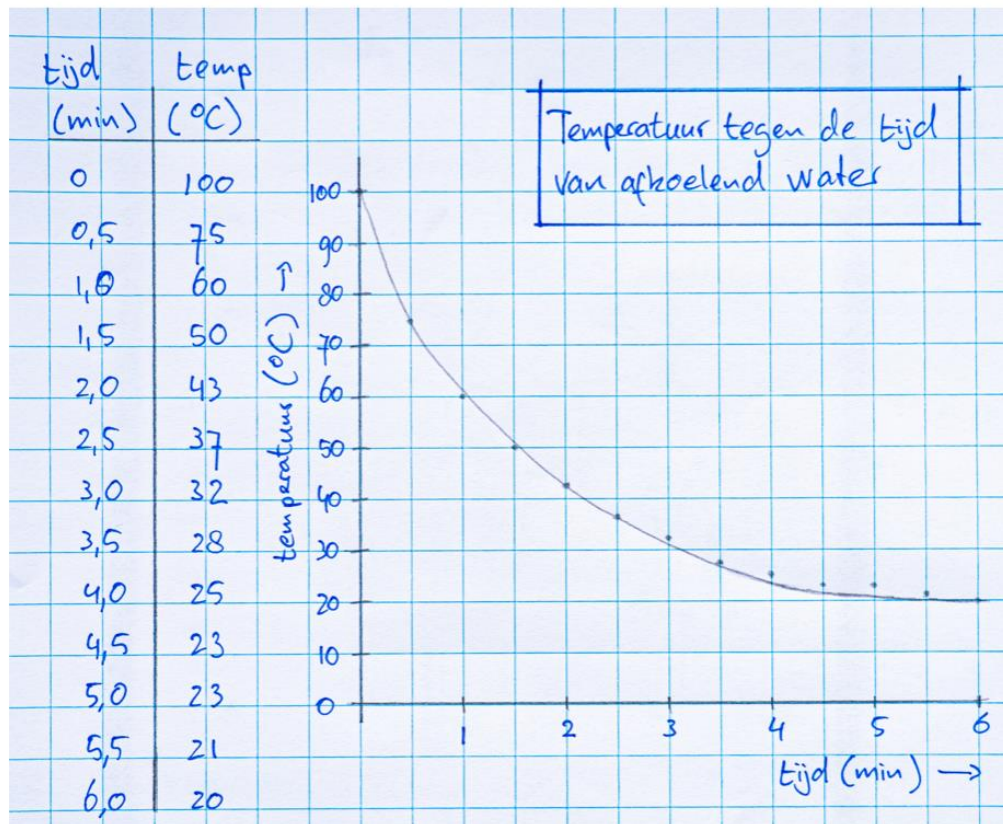 tijd temp
(min) (°C)
0 100
0,5 75
1,0 60
1,5 50
2,0 43
2,5 37
3,0 32
3,5 28
4,0 25
4,5 23
5,0 23
5,5 21
6,0 20
Temperatuur tegen de tijd
van afkoelend water
temperatuur (°C) →
100
90
80
70
60
50
40
30
20
10
0
1 2 3 4 5 6
tijd (min) →